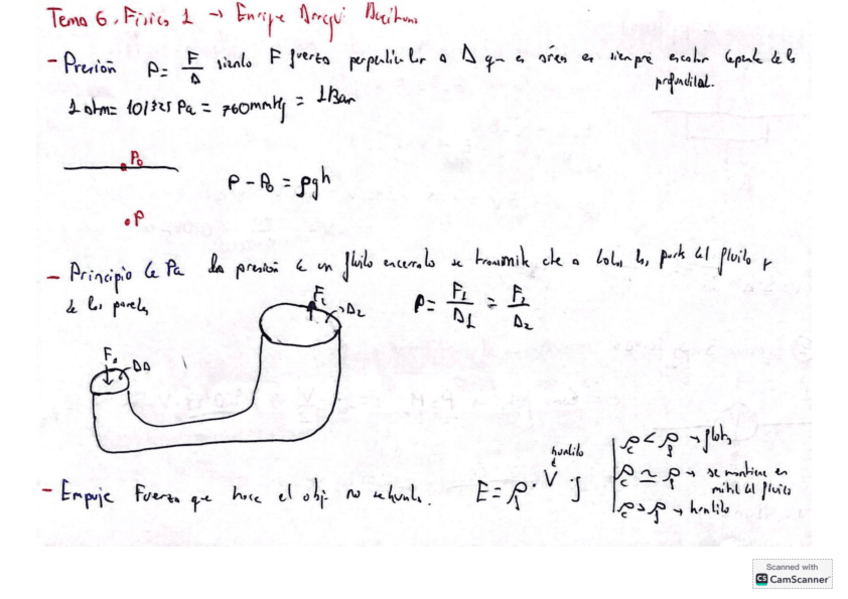 Tema 6. Física 1 → Enrique
- Presión P = F/A siendo F fuerza perpendicular a A que es área es siempre escalar depende de la
profundidad.
1 atm = 101325 Pa = 760mmHg = 1 Bar
P₀
P - P₀ = ρgh
P
- Principio de Pa la presión de un fluido encerrado se transmite a todos los del fluido y
de las paredes
P = F₁/A1 = F₂/A₂
F₂ → A₂
F₁
- Empuje Fuerza que hace el obj no se hunda. E = ρf · V g
hundido
ρc < ρf → flota
ρc ≃ ρf → se mantiene en
mitad del fluido
ρc > ρf → hundido
Scanned with
CS CamScanner